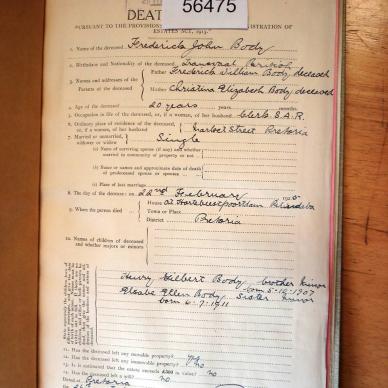 56475
DEAT
PURSUANT TO THE PROVISIONS ISTRATION OF
ESTATES ACT, 1913.
1. Name of the deceased Frederick John Body
2. Birthplace and Nationality of the deceased Transvaal British
3. Names and addresses of the Parents of the deceased
Father Frederick William Body, deceased
Mother Christina Elizabeth Body deceased
4. Age of the deceased 20 years months
5. Occupation in life of the deceased, or, if a woman, of her husband Clerk S.A.R.
6. Ordinary place of residence of the deceased, or, if a woman, of her husband Market Street Pretoria
7. Married or unmarried, widower or widow Single
(a) Name of surviving spouse (if any) and whether married in community of property or not
(b) Name or names and approximate date of death of predeceased spouse or spouses
(c) Place of last marriage
8. The day of the decease: on 22nd February
9. Where the person died
House at Hartebeestpoortdam
Town or Place
District Pretoria
10. Names of children of deceased and whether majors or minors
Henry Gilbert Body brother minor
born 5-12-1907
Elsabe Ellen Body, Sister minor
born 6-7-1911
11. Has the deceased left any movable property?
12. Has the deceased left any immovable property? no
13. Is it estimated that the estate exceeds £300 in value? no
14. Has the deceased left a will? no
Dated at Pretoria